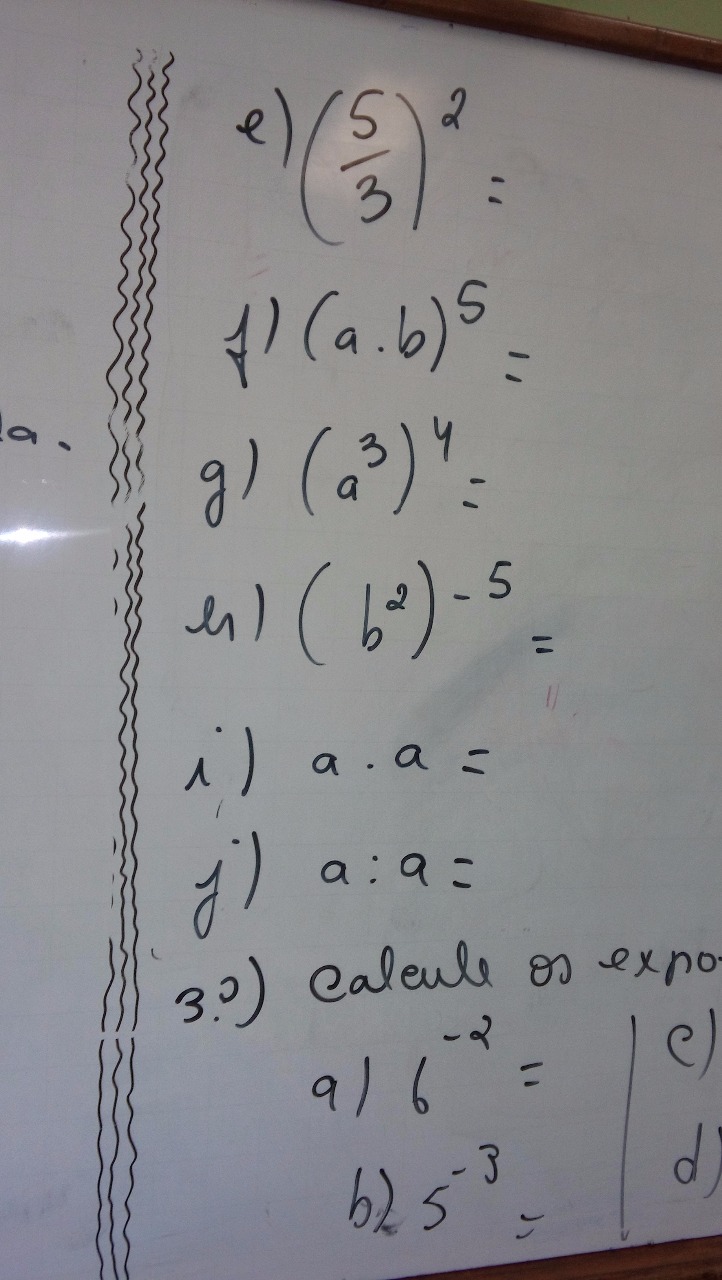 e) (5/3)² =
f) (a.b)⁵ =
g) (a³)⁴ =
h) (b²)⁻⁵ =
i) a . a =
j) a : a =
3.º) Calcule os expo-
a) 6⁻² =
c)
b) 5⁻³ =
d)